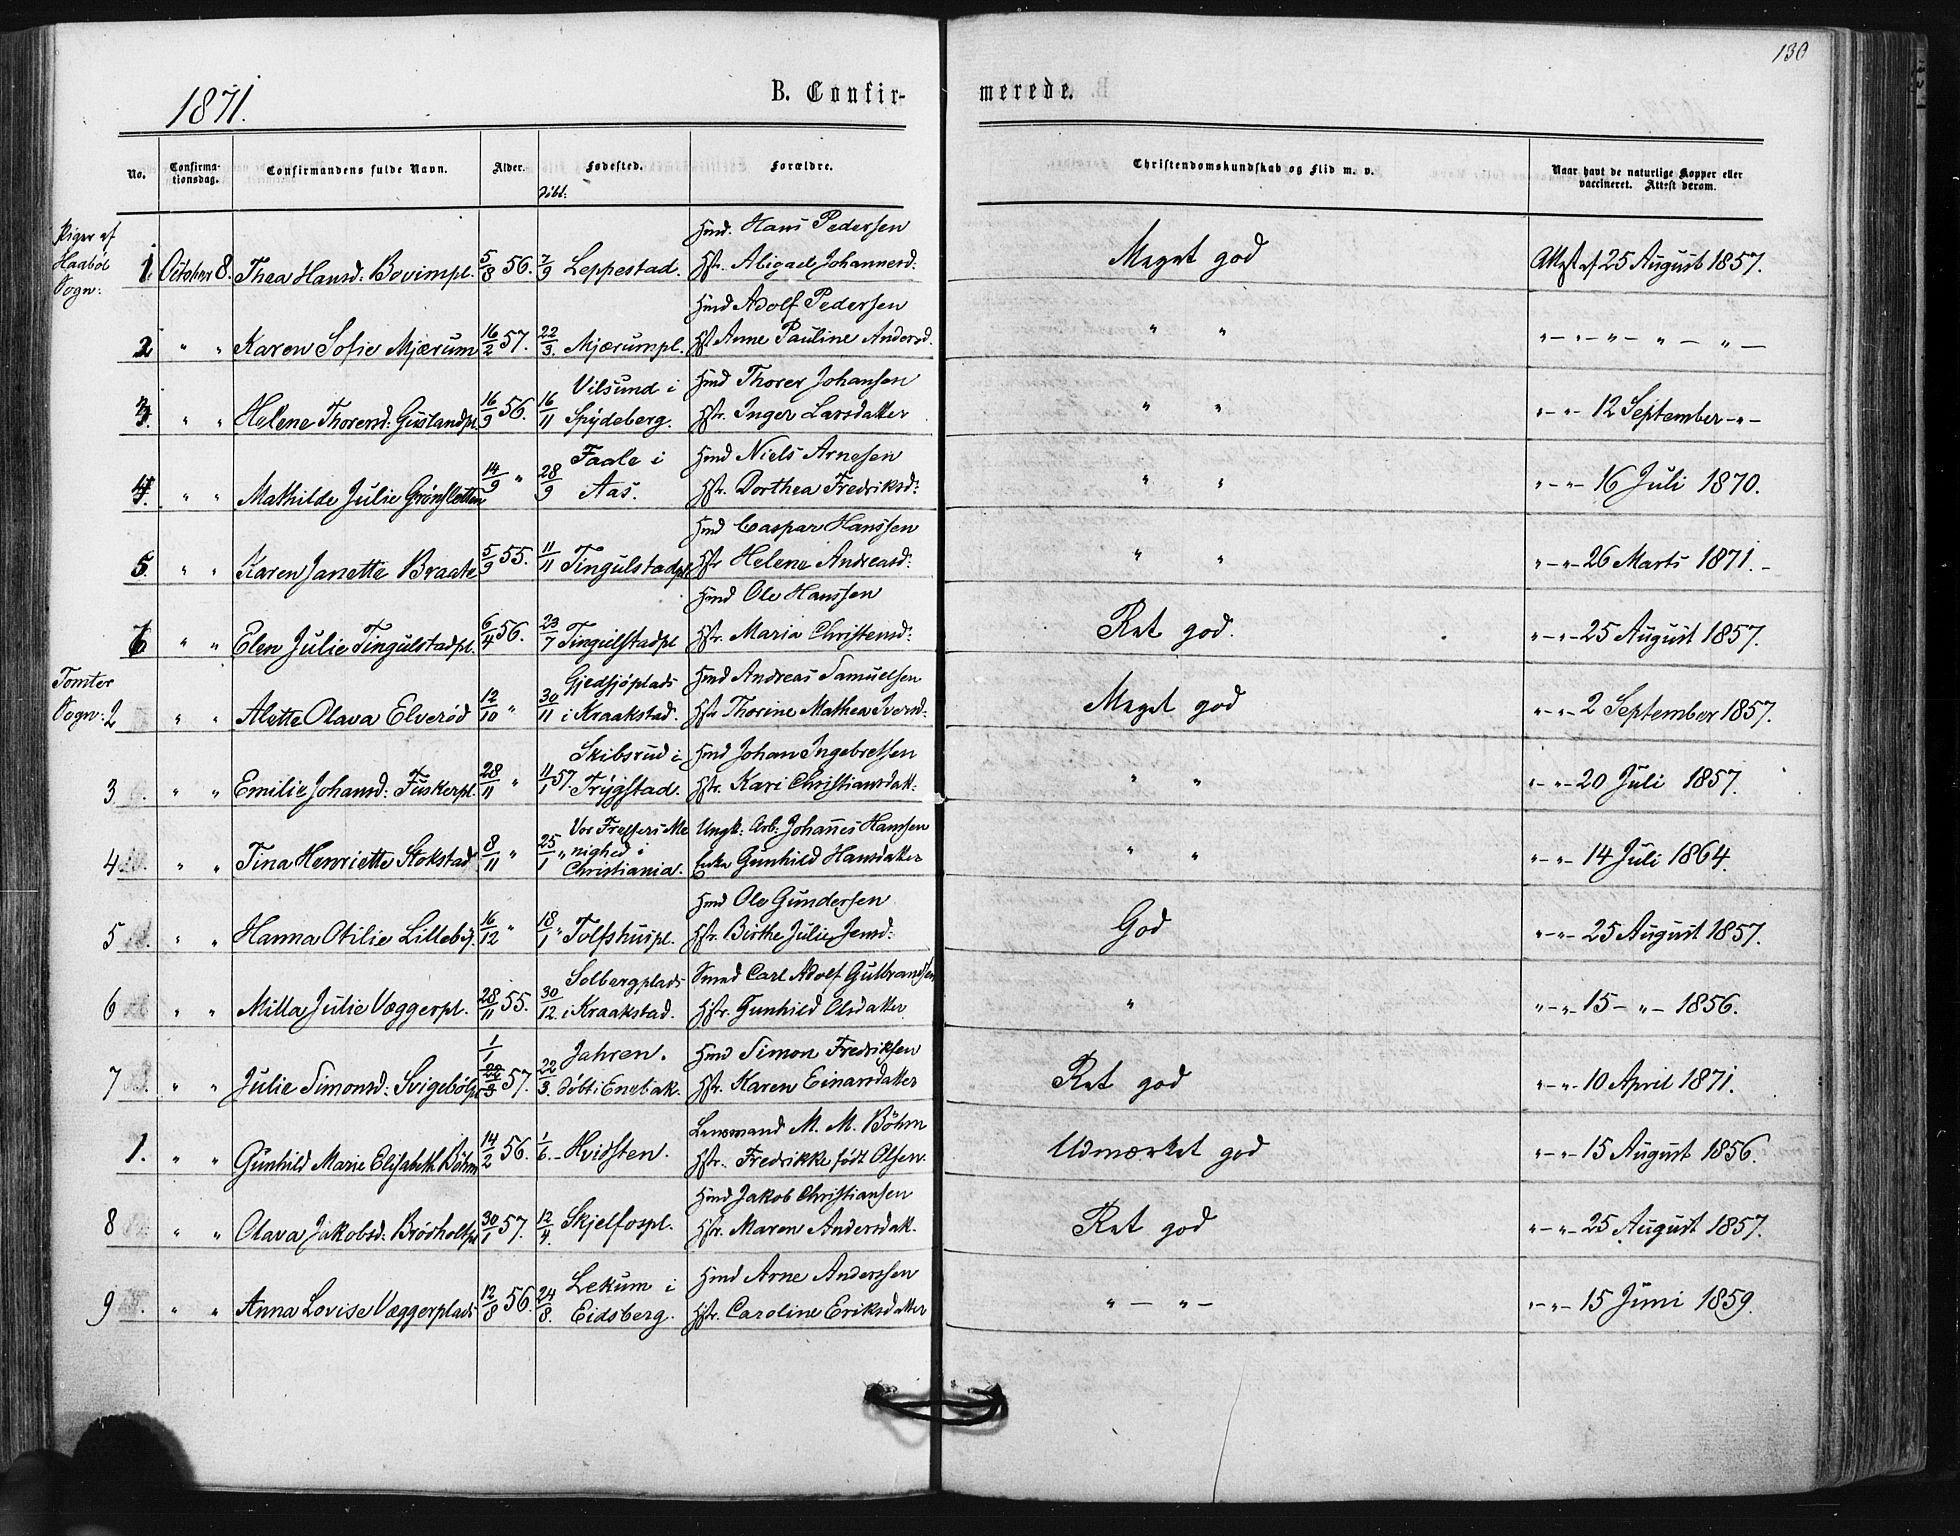 130
1871.
B. Confir-
merede.
No.
Confirma-
tionsdag.
Confirmandens fulde Navn.
Alder.
Fødested.
Forældre.
Christendomskundskab og Flid m. v.
Naar havt de naturlige Kopper eller
vaccineret. Attest derom.
Døbt.
Piger af
Haabøl
Sogn:
Hmd. Hans Pedersen
1 October 8. Thea Hansd: Bovimpl. 5/8 56. 7/9 Leppestad. Hstr. Abigael Johannesd: Meget god Attest af 25 August 1857.
Hmd Adolf Pedersen
2 " " Karen Sofie Mjærum 16/2 57. 22/3. Mjærumpl. Hst Anne Pauline Andersd. " " "-"-"- "- "-
Vilsund i Hmd Thorer Johansen
3. " " Helene Thorersd: Gislandpl. 16/9 56. 16/11 Spydeberg. Hstr. Inger Larsdatter " " "-"- 12 September -"-
Faale i Hmd Niels Arnesen
4. " " Mathilde Julie Grønsletten 14/9 " 28/9 Aas. Hstr. Dorthea Fredriksd: " " "-"- 16 Juli 1870.
Hmd Caspar Hanssen
5. " " Karen Janette Braate 5/9 55. 11/11 Tingulstadpl Hstr Helene Andreasd: " " "-"- 26 Marts 1871.-
Hmd Ole Hanssen
6 " " Elen Julie Tingulstadpl. 6/4 56. 23/7 Tingulstadpl Hstr. Maria Christensd: Ret god. "-"- 25 August 1857.
Tomter
Sogn:
Gjedsjøplads Hmd Andreas Samuelsen
2 " " Alette Olava Elverød 12/10 " 30/11 i Kraakstad. Hstr Thorine Mathea Iversd: Meget god "-"- 2 September 1857.
Skibsrud i Hmd Johan Ingebretsen
3 " " Emilie Johansd: Fuskerpl. 28/11 " 11/1 57. Trygstad. Hstr. Kari Christiansdatt: " " "-"- 20 Juli 1857.
Vor Frelsers Me Ungk: Arb: Johannes Hanssen
4 " " Tina Henriette Stokstad 8/11 " 25/1 " nighed i Christiania. Enke Gunhild Hansdatter " " "-"- 14 Juli 1864.
Hmd Ole Gundersen
5 " " Hanna Otilie Lilleby. 16/12 " 18/1 " Tolfshuspl. Hstr. Birthe Julie Jensd: God "-"- 25 August 1857.
Solbergplads Smed Carl Adolf Gulbrandsen
6 " " Milla Julie Væggerpl. 28/11 55. 30/12. i Kraakstad. Hstr. Gunhild Olsdatter " "-"- 15- "- 1856.
1/1 Jahren. Hmd Simon Fredriksen
7 " " Julie Simonsd: Svigebølpl 22/3 57. 22/3 døbt i Enebak. Hstr. Karen Einarsdatter Ret god "-"- 10 April 1871.
Lensmand M. M. Böhm
1. " " Gunhild Marie Elisabeth Böhm 14/2 56. 1/6. - Hvidsten. Hstr. Fredrikke født Olsen. Udmærket god "-"- 15 August 1856.
Hmd Jakob Christiansen
8 " " Olava Jakobsd: Brødholtpl 30/1 57. 12/4. Skjelfospl. Hstr. Maren Andersdatt. Ret god "-"- 25 August 1857.
Lekum i Hmd Arne Anderssen
9 " " Anna Lovise Væggerplads 12/8 56. 24/8. Eidsberg. Hstr. Caroline Eriksdatter "- "- "-"- 15 Juni 1859.